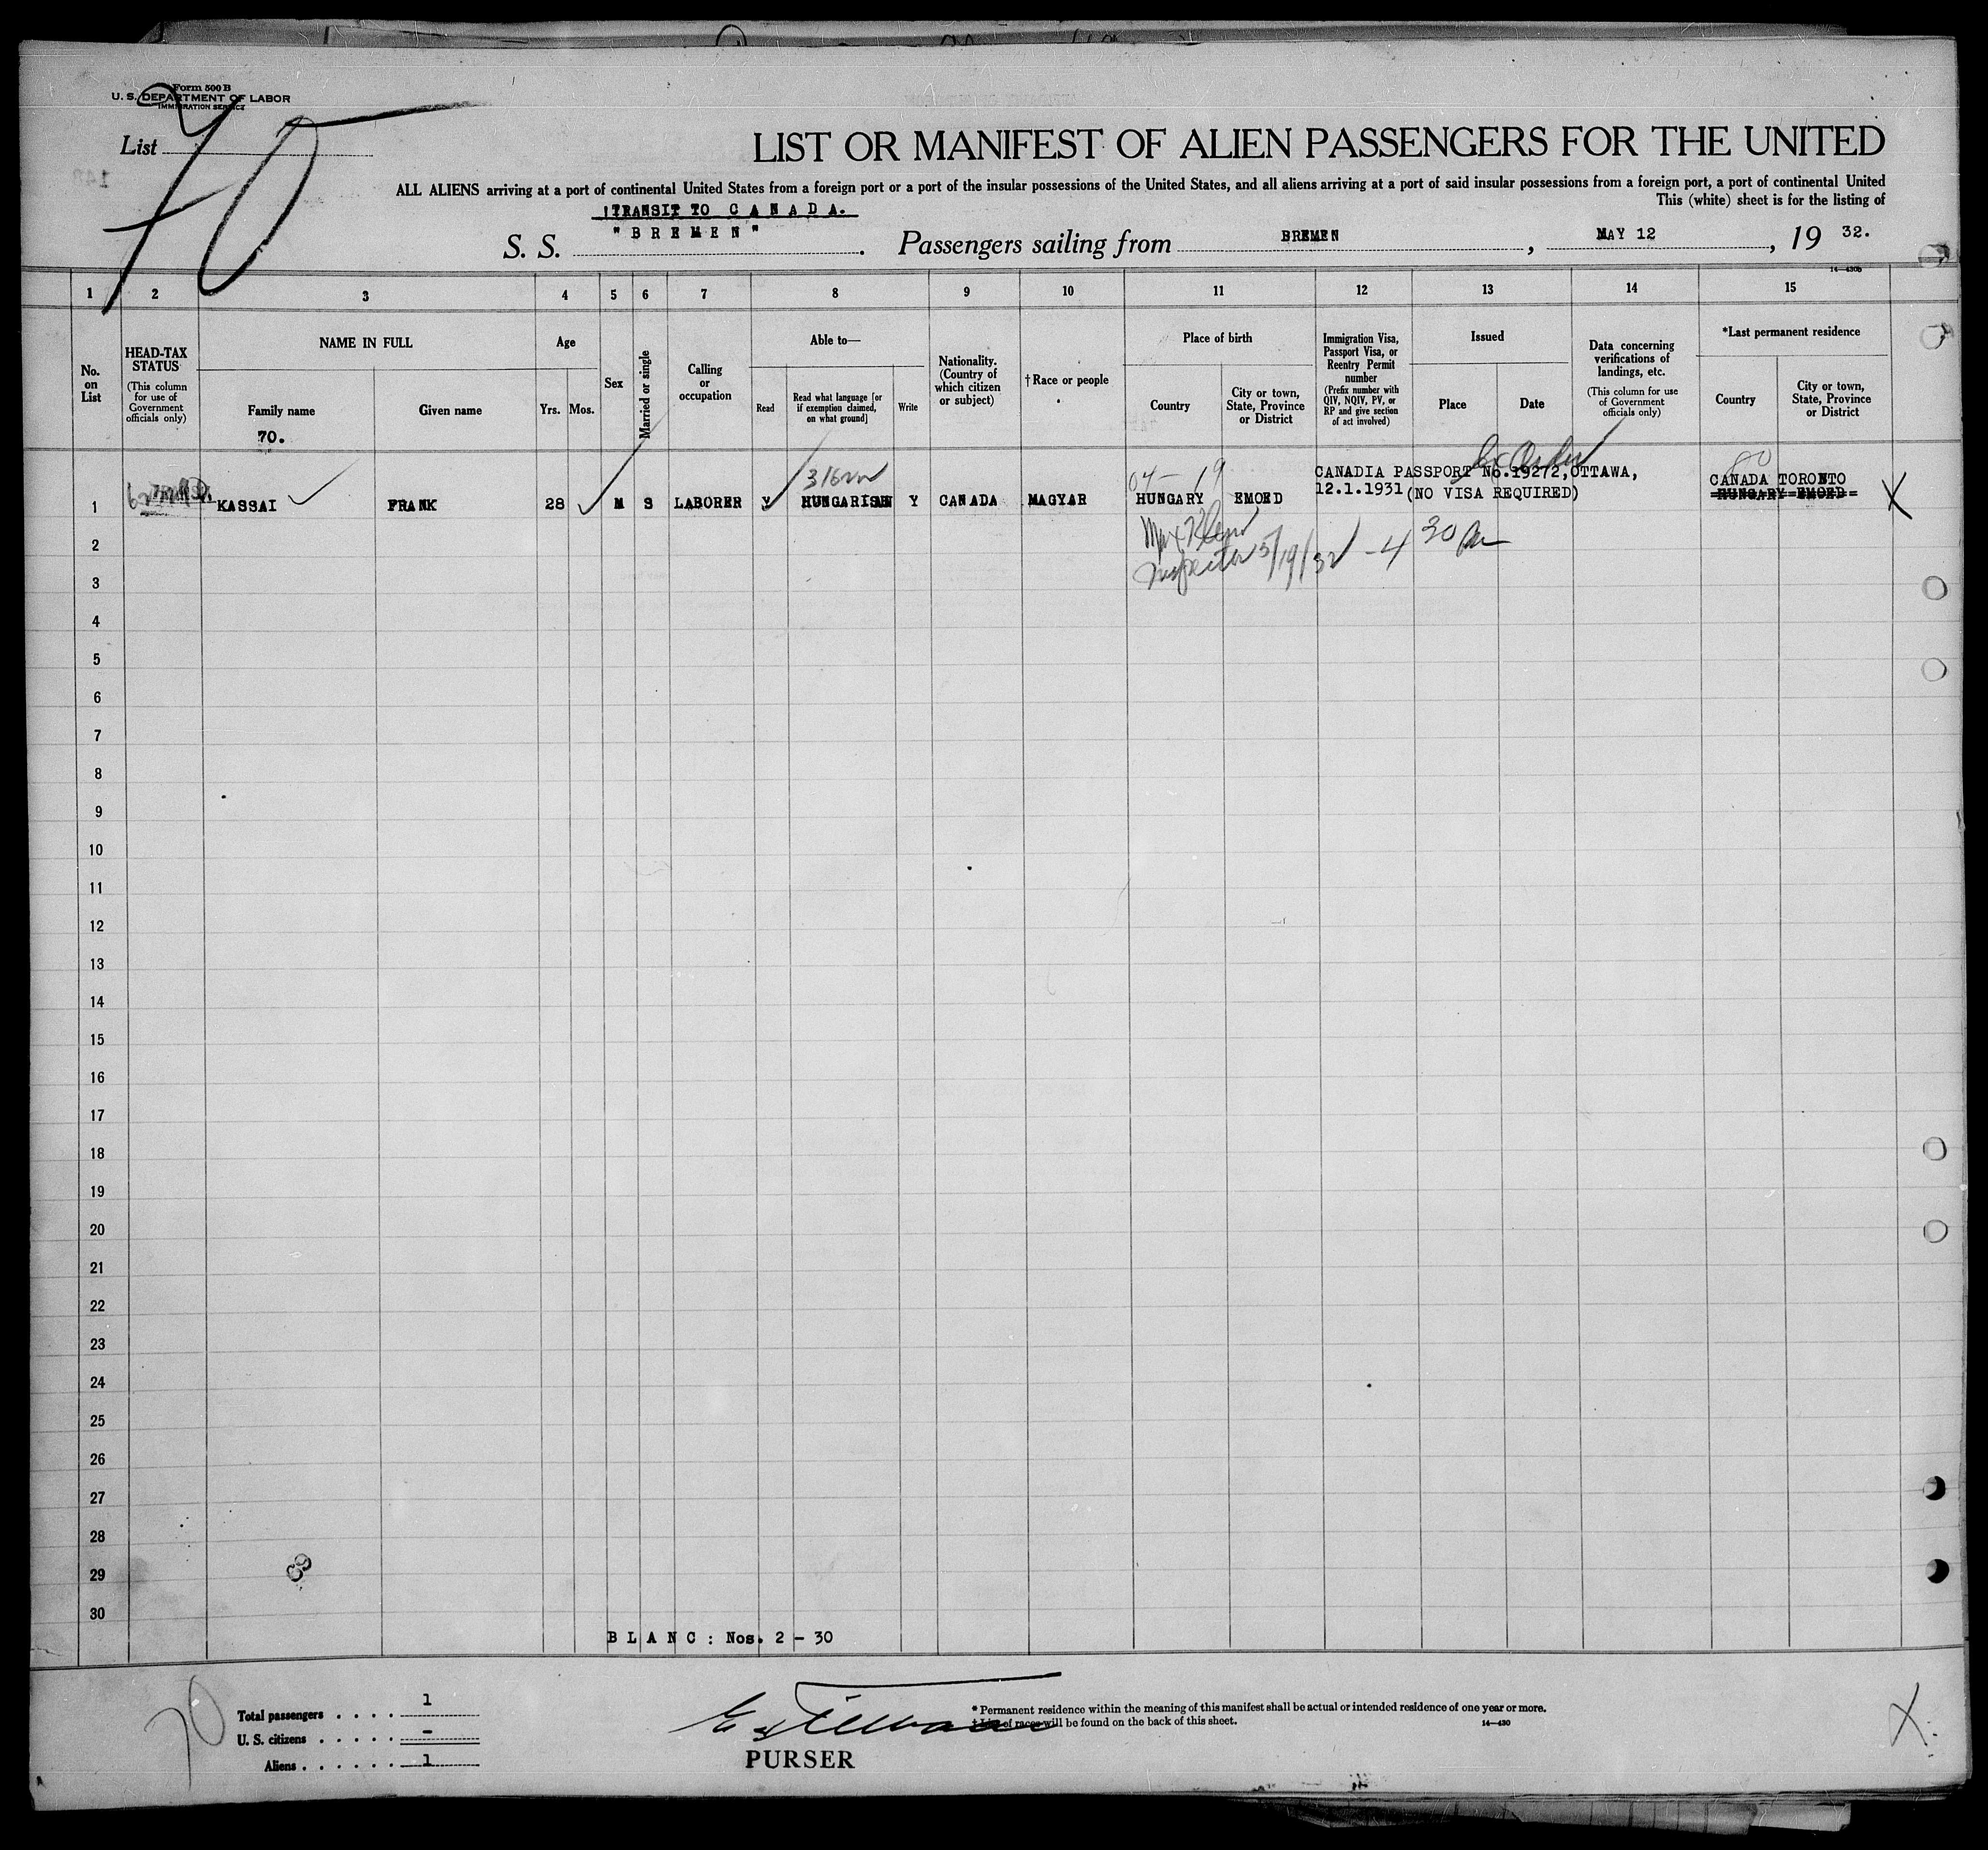 Form 500 B
U. S. DEPARTMENT OF LABOR
IMMIGRATION SERVICE
List
70
LIST OR MANIFEST OF ALIEN PASSENGERS FOR THE UNITED
ALL ALIENS arriving at a port of continental United States from a foreign port or a port of the insular possessions of the United States, and all aliens arriving at a port of said insular possessions from a foreign port, a port of continental United
This (white) sheet is for the listing of
TRANSIT TO CANADA.
S. S. "BREMEN". Passengers sailing from BREMEN, MAY 12, 19 32.
14—430b
1 2 3 4 5 6 7 8 9 10 11 12 13 14 15
No. on List
HEAD-TAX STATUS
(This column for use of Government officials only)
NAME IN FULL
Family name
Given name
70.
Age
Yrs. Mos.
Sex
Married or single
Calling or occupation
Able to—
Read
Read what language [or if exemption claimed, on what ground]
Write
Nationality. (Country of which citizen or subject)
† Race or people
Place of birth
Country
City or town, State, Province or District
Immigration Visa, Passport Visa, or Reentry Permit number
(Prefix number with QIV, NQIV, PV, or RP and give section of act involved)
Issued
Place
Date
Data concerning verifications of landings, etc.
(This column for use of Government officials only)
*Last permanent residence
Country
City or town, State, Province or District
04- 19
80
CANADIA PASSPORT No.19272,OTTAWA,
12.1.1931 (NO VISA REQUIRED)
CANADA TORONTO
1 KASSAI FRANK 28 M S LABORER Y HUNGARISH Y CANADA MAGYAR HUNGARY EMOED HUNGARY EMOED X
Max Klein
Inspector 5/19/32 - 4 30 Pm
2
3
4
5
6
7
8
9
10
11
12
13
14
15
16
17
18
19
20
21
22
23
24
25
26
27
28
29
30
BLANC: Nos. 2 - 30
70
Total passengers . . . . 1
U. S. citizens . . . . . –
Aliens . . . . . . 1
PURSER
* Permanent residence within the meaning of this manifest shall be actual or intended residence of one year or more.
† List of races will be found on the back of this sheet.
14—430
X